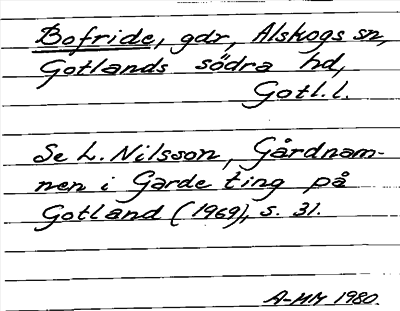 Bofride, gdr, Alskogs sn,
Gotlands södra hd,
Gotl.l.
Se L. Nilsson, Gårdnam-
nen i Garde ting på
Gotland (1969), s. 31.
A-MM 1980.